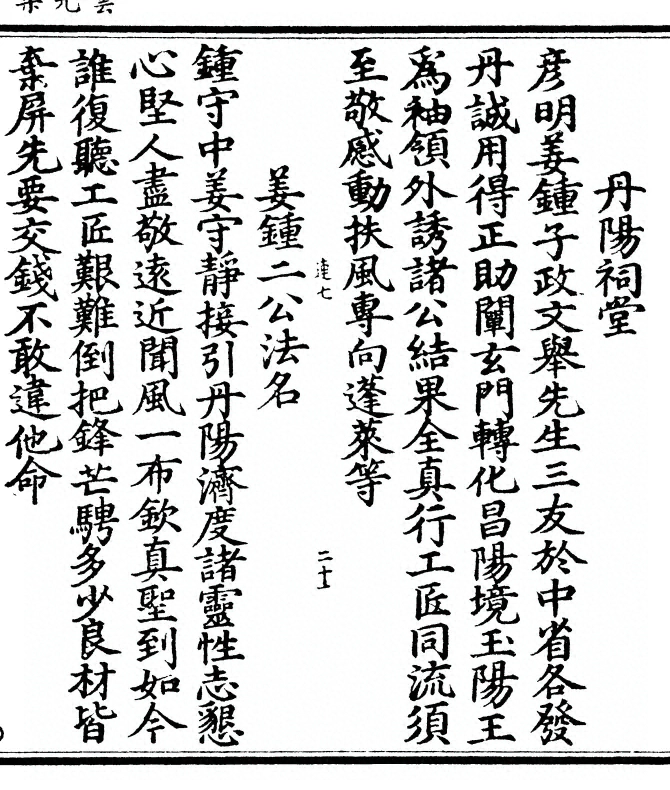 丹陽祠堂
彥明姜鍾子政文舉先生三友於中省各發
丹誠用得正助闡玄門轉化昌陽境玉陽王
爲袖領外誘諸公結果全真行工匠同流須
至敬感動扶風專向蓬萊等
連七
二十
姜鍾二公法名
鍾守中姜守靜接引丹陽濟度諸靈性志懇
心堅人盡敬遠近聞風一布欽真聖到如今
誰復聽工匠艱難倒把鋒芒騁多少良材皆
棄屏先要交錢不敢違他命